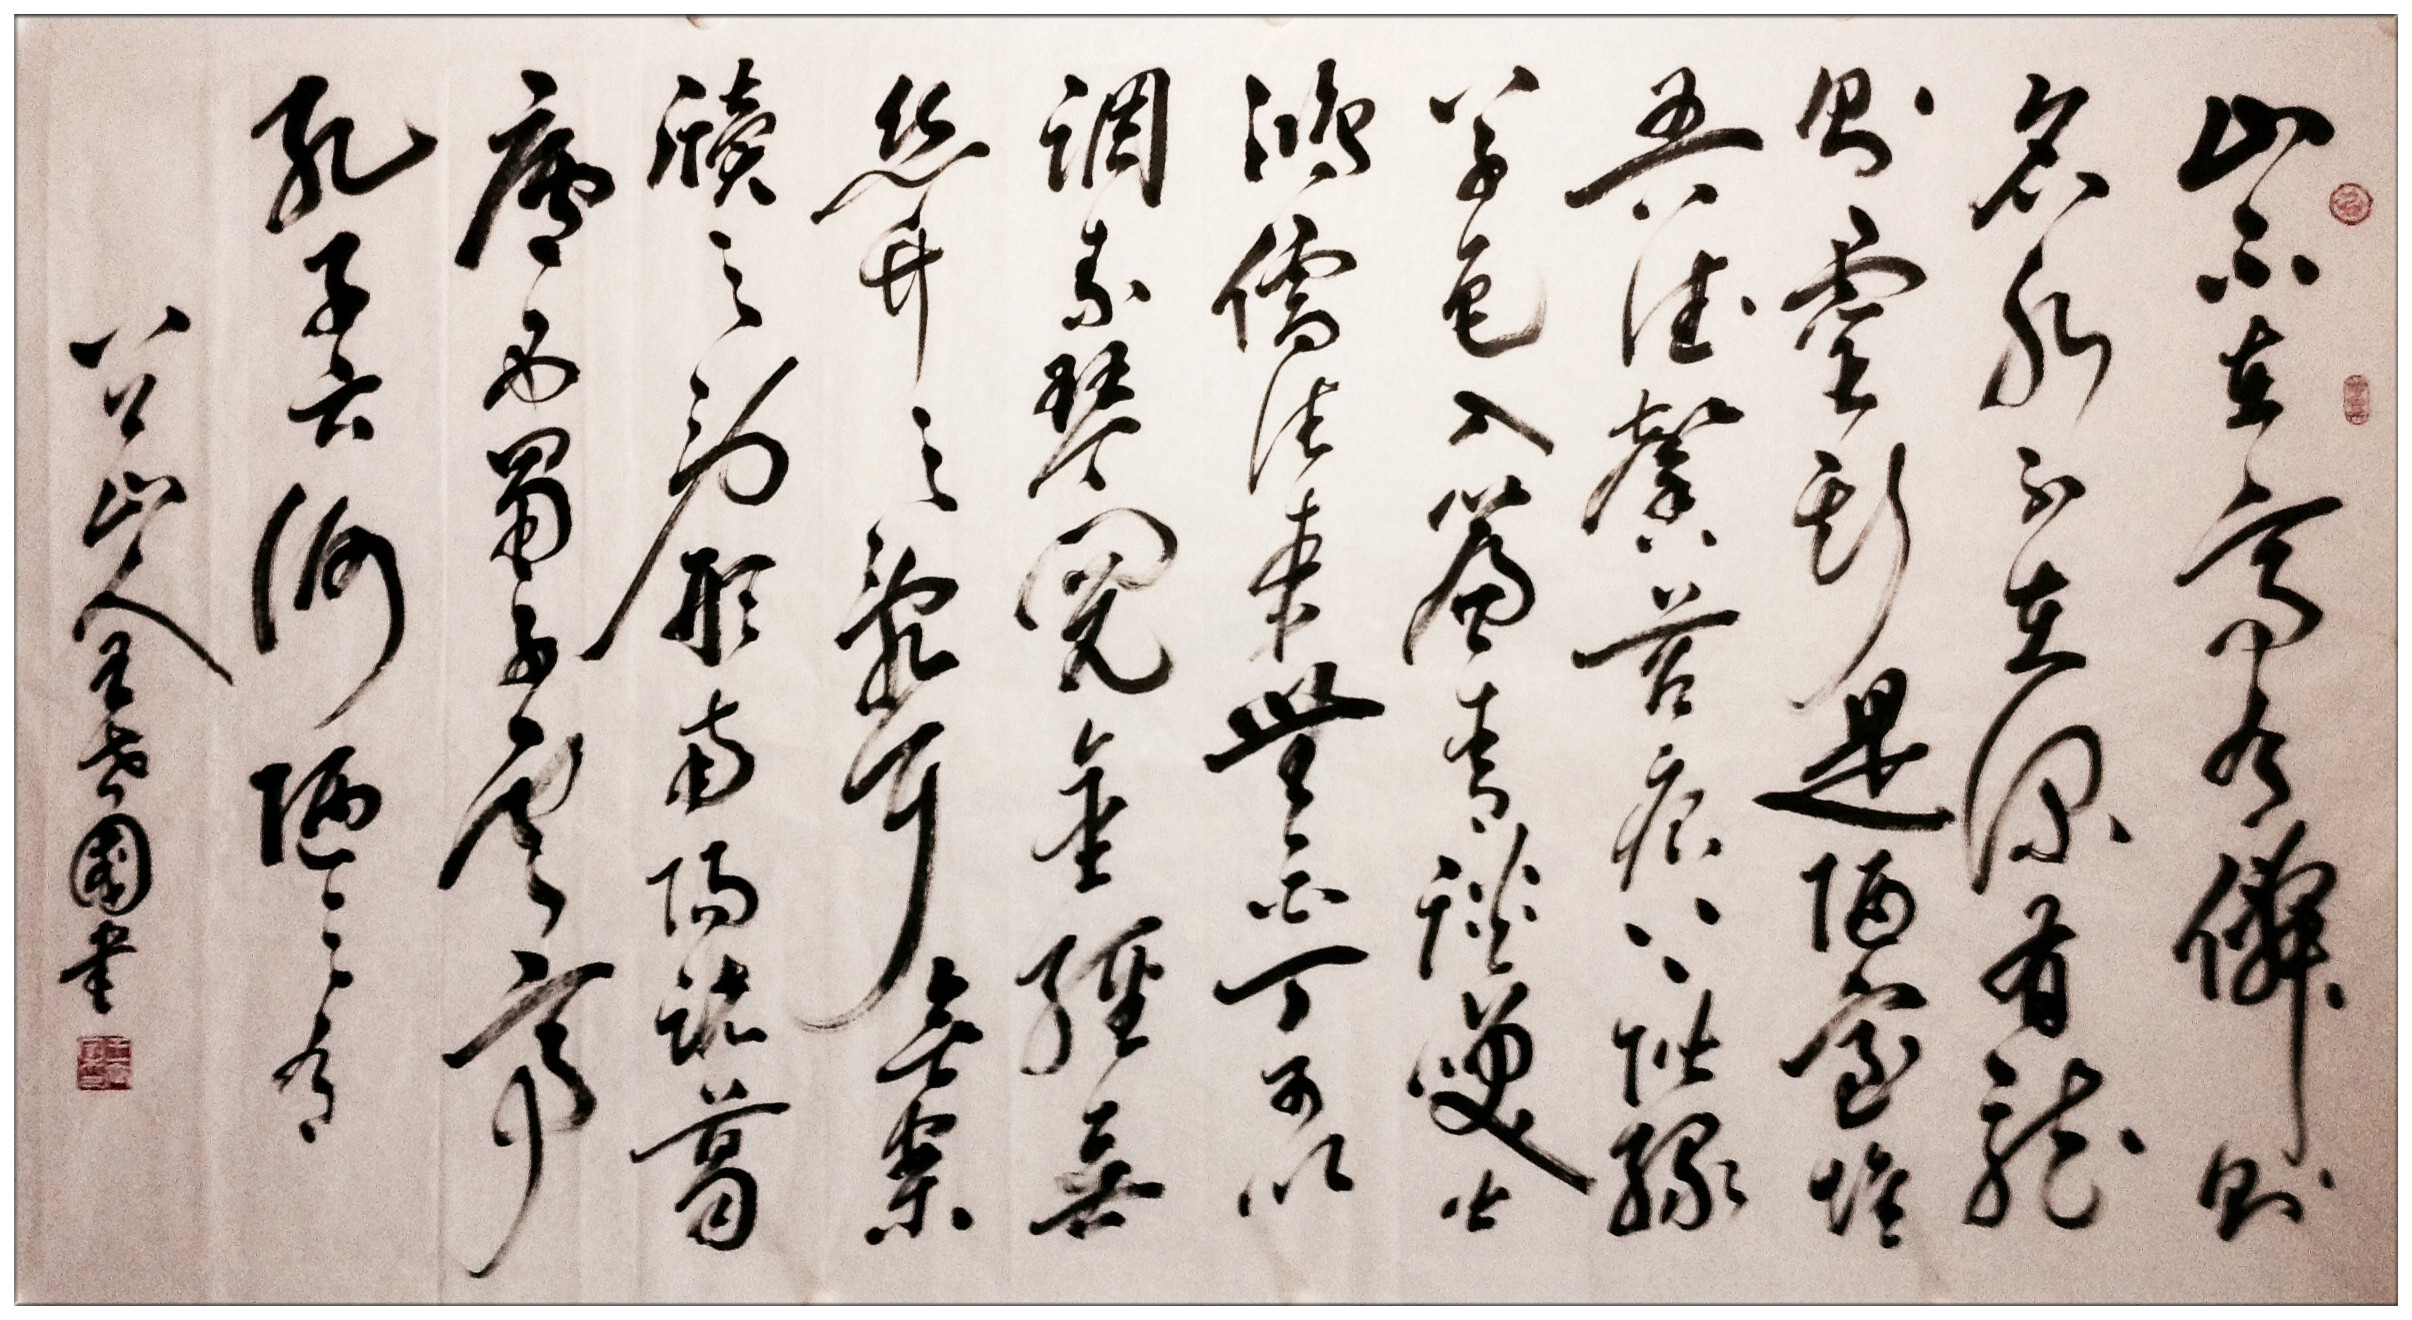 山不在高有僊則
名水不在深有龍
則靈斯是陋室惟
吾德馨苔痕上階綠
草色入簾青談笑有
鴻儒往來無白丁可以
調素琴閱金經無
絲竹之亂耳無案
牘之勞形南陽諸葛
廬西蜀子雲亭
孔子云何陋之有
公山人王國書